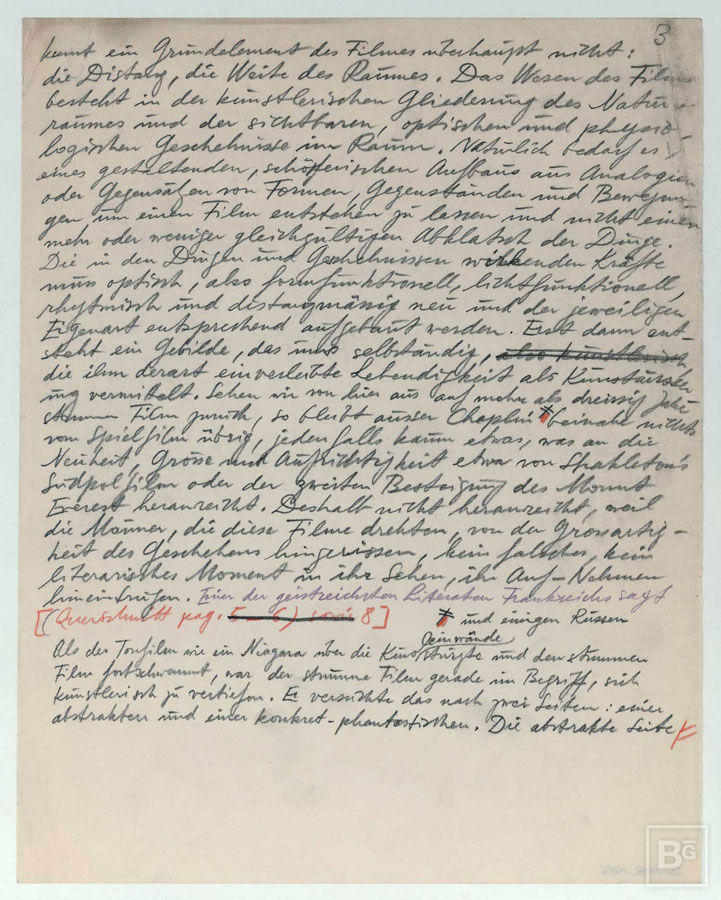 3
kennt ein Grundelement des Filmes überhaupt nicht:
die Distanz, die Weite des Raumes. Das Wesen des Films
besteht in der künstlerischen Gliederung des Natur-
raumes und der sichtbaren, optischen und physio-
logischen Geschehnisse im Raum. Natürlich bedarf es
eines gestaltenden, schöpferischen Aufbaus aus Analogien
oder Gegensätzen von Formen, Gegenständen und Bewegun-
gen, um einen Film entstehen zu lassen und nicht einen
mehr oder weniger gleichgültigen Abklatsch der Dinge.
Die in den Dingen und Geschehnissen wirkenden Kräfte
muss optisch, also formfunktionell, lichtfunktionell,
rhytmisch und distanzmässig neu und der jeweiligen
Eigenart entsprechend aufgebaut werden. Erst dann ent-
steht ein Gebilde, das uns selbständig, also künstlerisch
die ihm derart einverleibte Lebendigkeit als Kunst
ung vermittelt. Sehen wir von hier aus auf mehr als dreissig Jahre
stummen Film zurück, so bleibt ausser Chaplin * beinahe nichts
vom Spielfilm übrig, jedenfalls kaum etwas, was an die
Neuheit, Grösse und Aufrichtigkeit etwa von Shakleton's
Südpolfilm oder der zweiten Besteigung des Mount
Everest heranreicht. Deshalb nicht heranreicht, weil
die Männer, die diese Filme drehten, von der Grossartig-
keit des Geschehens hingerissen, kein falsches, kein
literarisches Moment in ihr Sehen, ihr Auf-Nehmen
hineintrugen. Einer der geistreichsten Literaten Frankreichs sagt
[(Querschnitt pag. 5-6) 8]
* und einigen Russen
Als der Tonfilm wie ein Niagara über die Leinwände stürzte und den stummen
Film fortschwemmt, war der stumme Film gerade im Begriff, sich
künstlerisch zu vertiefen. Er versuchte das nach zwei Seiten: einer
abstrakten und einer konkret-phantastischen. Die abstrakte Seite
BG